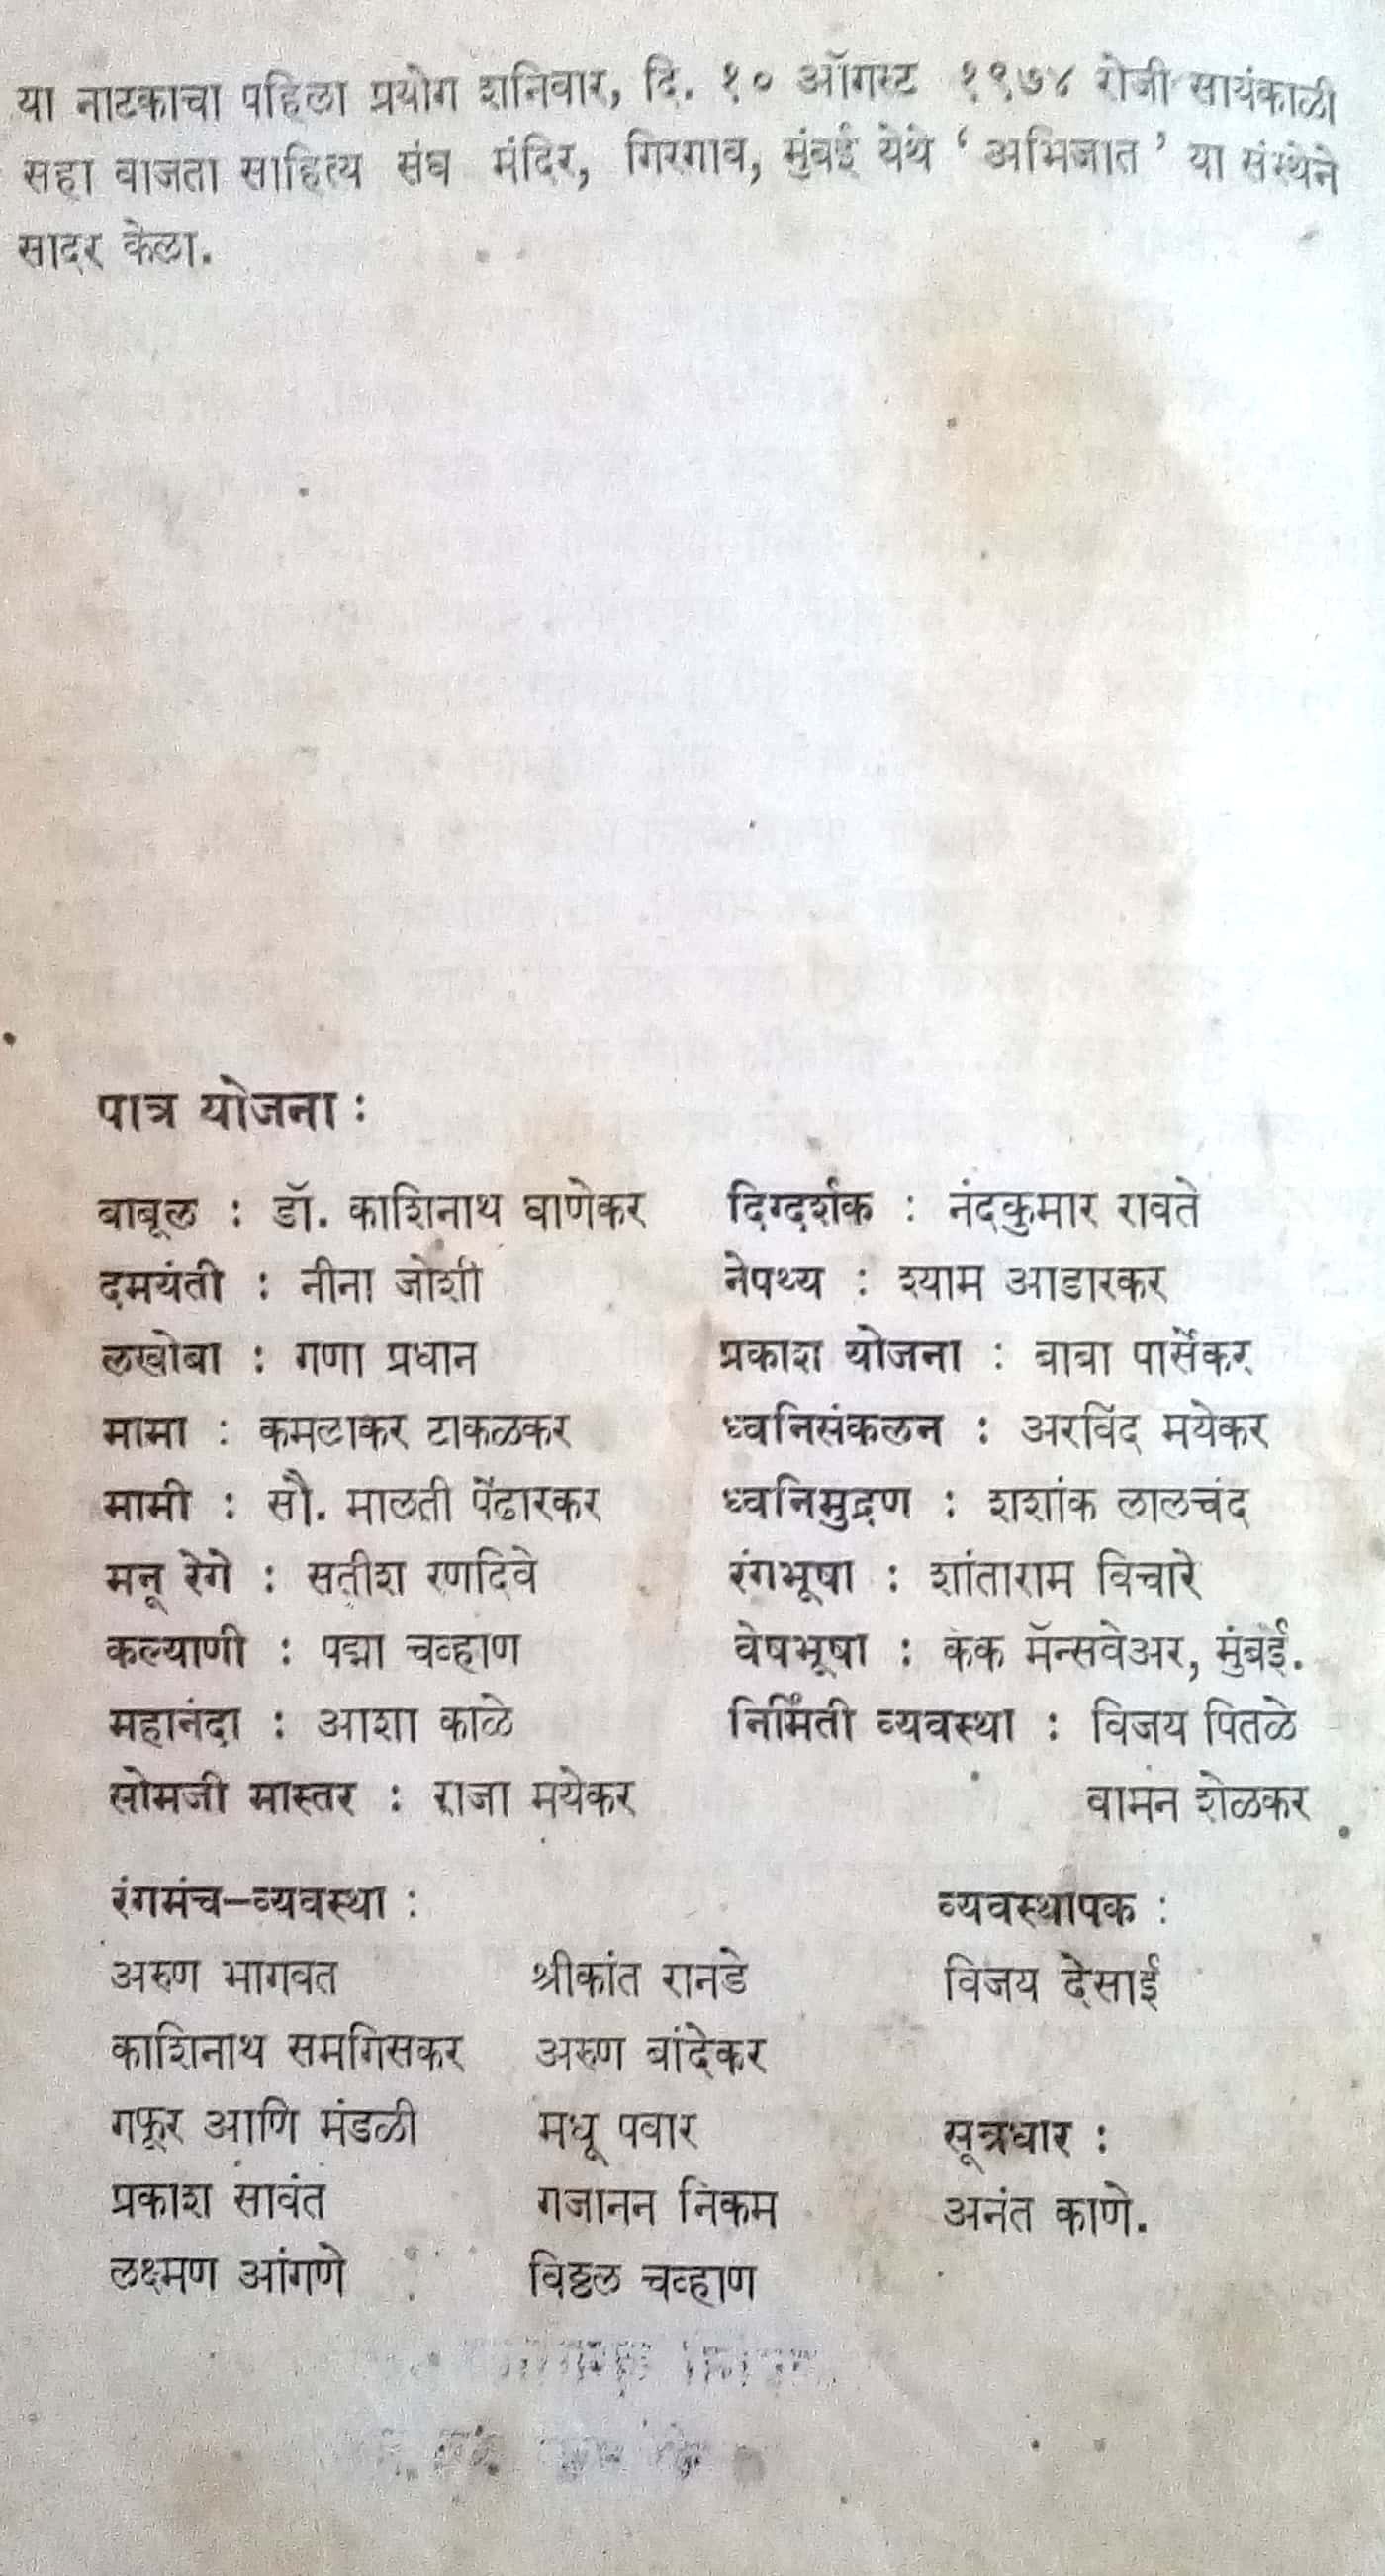 या नाटकाचा पहिला प्रयोग शनिवार, दि. १० ऑगस्ट १९७४ रोजी सायंकाळी
सहा वाजता साहित्य संघ मंदिर, गिरगाव, मुंबई येथे ‘ अभिजात ’ या संस्थेने
सादर केला.
पात्र योजना :
बाबूल : डॉ. काशिनाथ घाणेकर
दमयंती : नीना जोशी
लखोबा : गणा प्रधान
मामा : कमलाकर टाकळकर
मामी : सौ. मालती पेंढारकर
मनू रेगे : सतीश रणदिवे
कल्याणी : पद्मा चव्हाण
महानंदा : आशा काळे
सोमजी मास्तर : राजा मयेकर
दिग्दर्शक : नंदकुमार रावते
नेपथ्य : श्याम आडारकर
प्रकाश योजना : बाबा पार्सेकर
ध्वनिसंकलन : अरविंद मयेकर
ध्वनिमुद्रण : शशांक लालचंद
रंगभूषा : शांताराम विचारे
वेषभूषा : कक मॅन्सवेअर, मुंबई.
निर्मिती व्यवस्था : विजय पितळे
वामन शेळकर
रंगमंच–व्यवस्था :
अरुण भागवत
काशिनाथ समगिसकर
गफूर आणि मंडळी
प्रकाश सावंत
लक्ष्मण आंगणे
श्रीकांत रानडे
अरुण बांदेकर
मधू पवार
गजानन निकम
विठ्ठल चव्हाण
व्यवस्थापक :
विजय देसाई
सूत्रधार :
अनंत काणे.